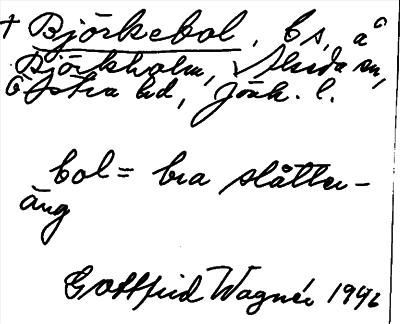 † Björkebol, bs, å
Björkholm, Skeda sn,
Östra hd, Jönk. l.
bol = bra slåtter-
äng
Gottfrid Wagnér 1942